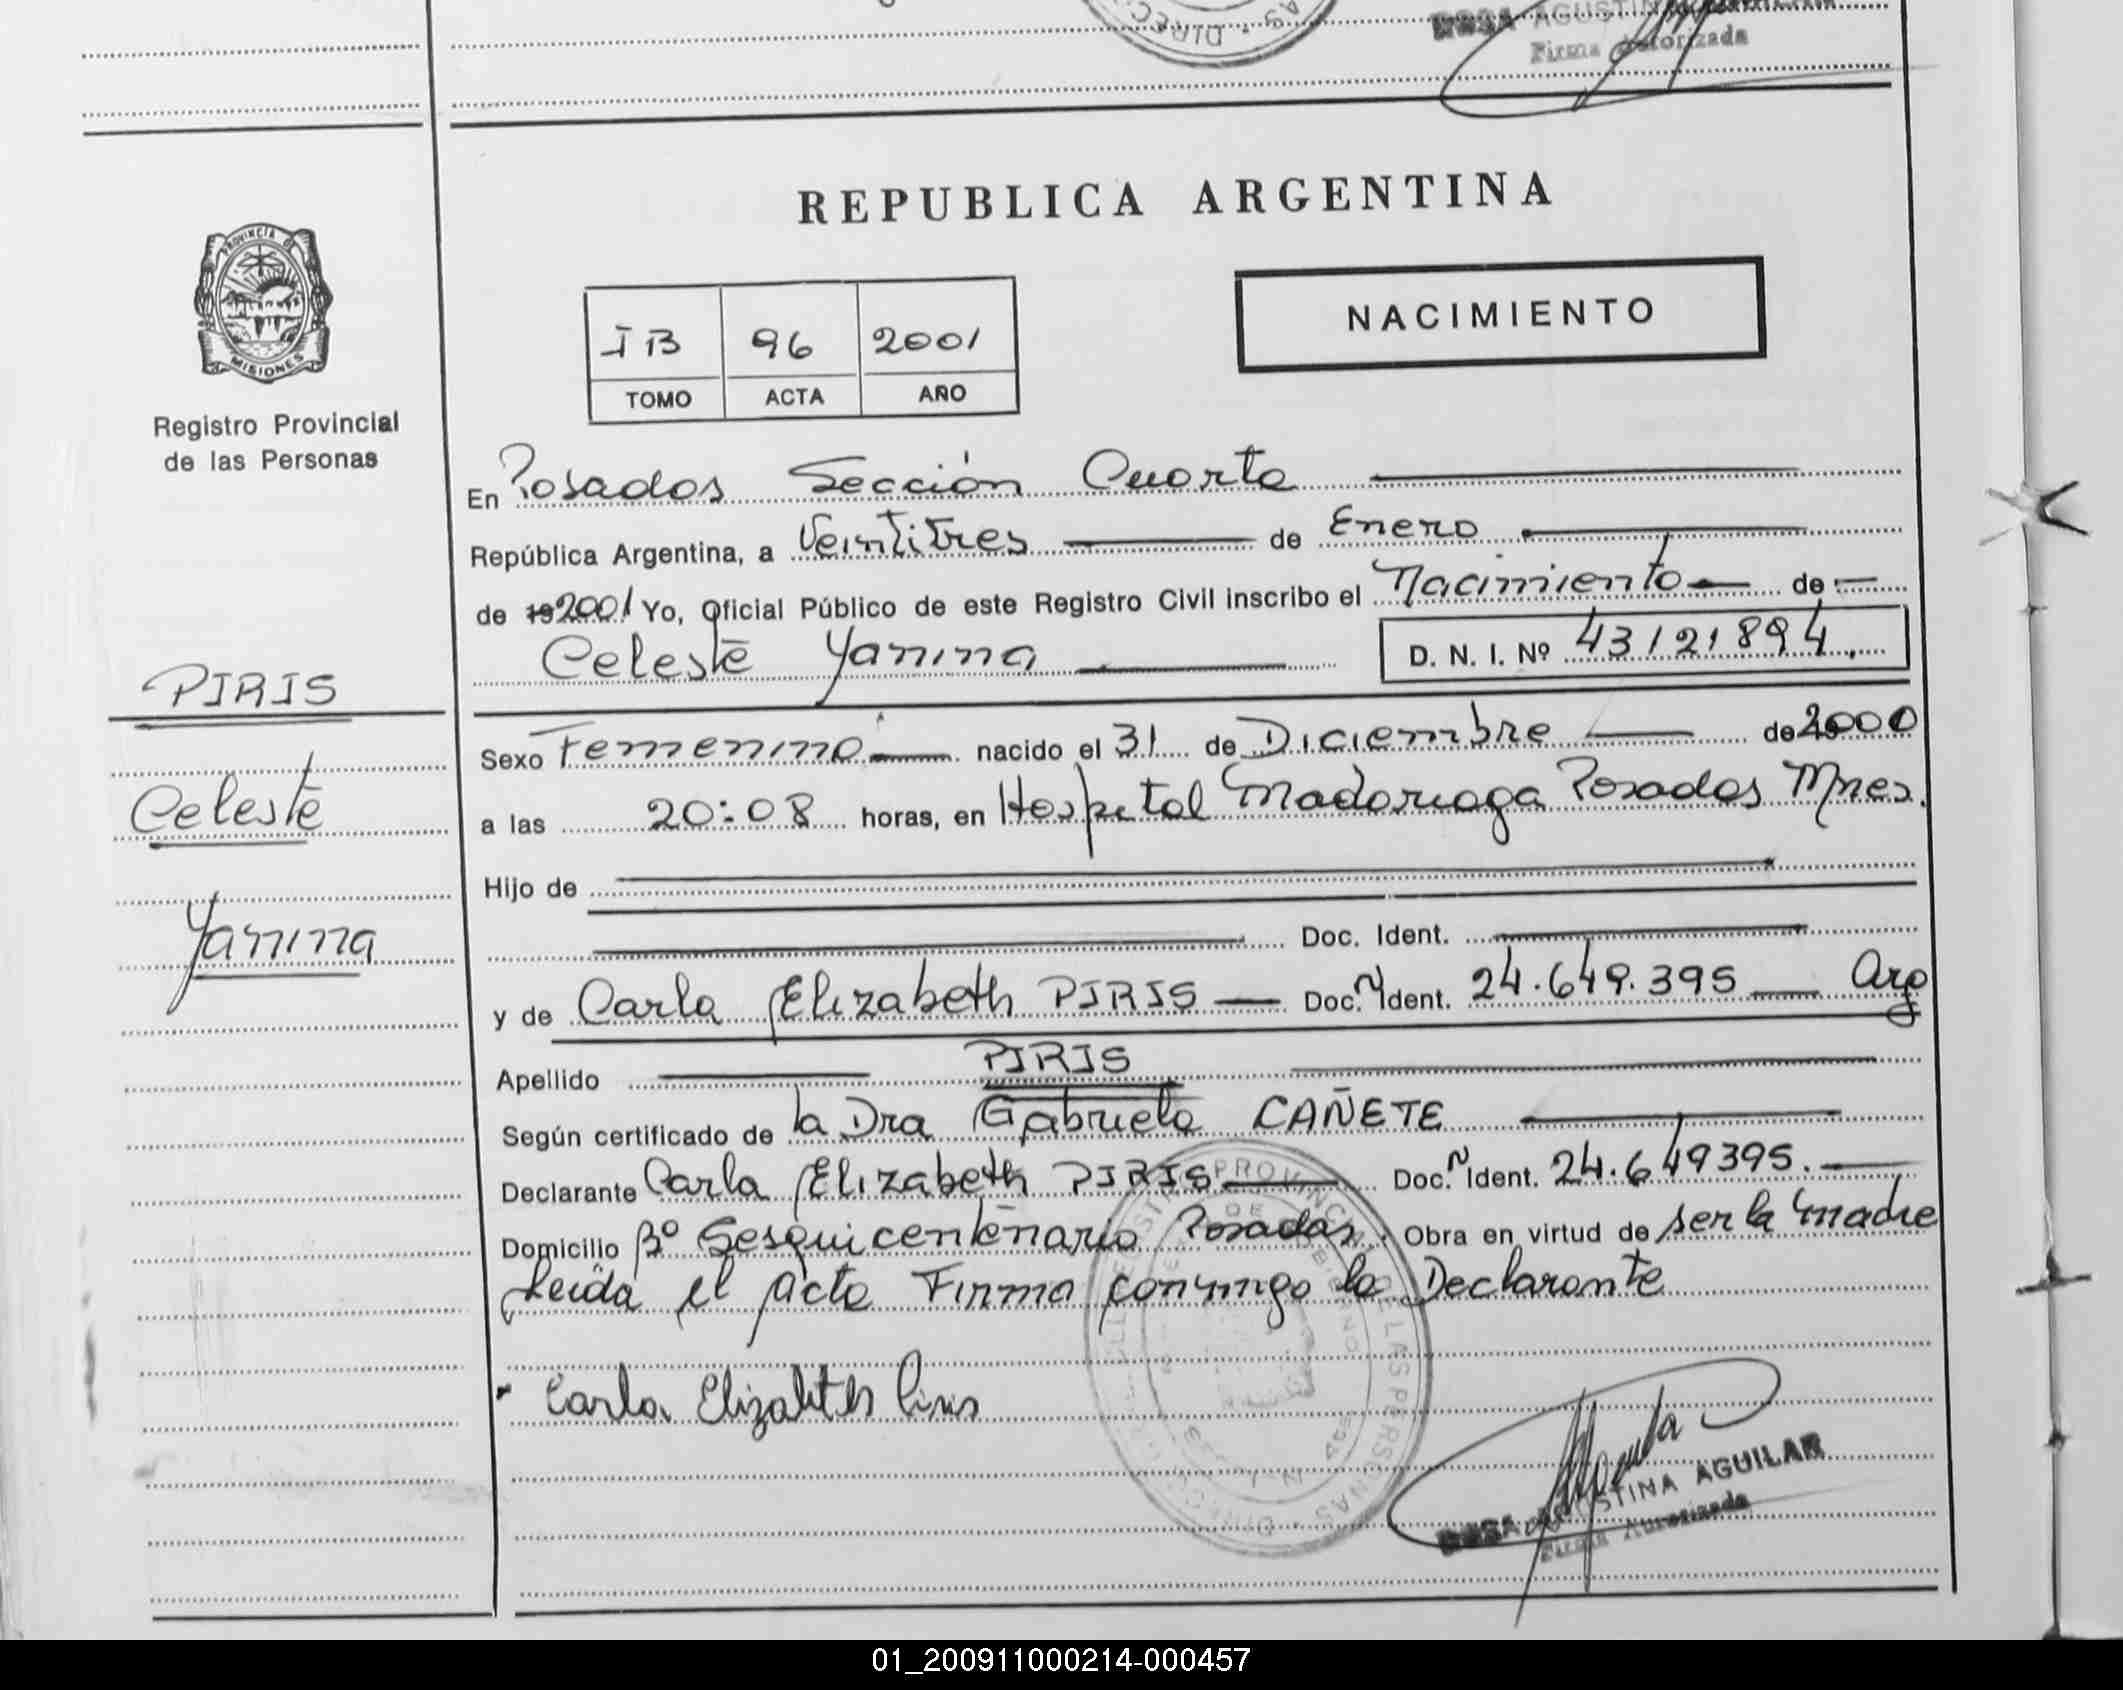 DIREC
AGUSTINA AGUILAR
Firma Autorizada
PROVINCIA DE
MISIONES
Registro Provincial
de las Personas
REPUBLICA ARGENTINA
NACIMIENTO
I B 96 2001
TOMO ACTA AÑO
En Posadas Sección Cuarta
República Argentina, a Veintitres de Enero
de 19 2001 Yo, Oficial Público de este Registro Civil inscribo el Nacimiento de
Celeste Yanina D. N. I. Nº 43121894.
PIRIS
Celeste
Yanina
Sexo Femenino nacido el 31 de Diciembre de 2000
a las 20:08 horas, en Hospital Madariaga Posadas Mnes.
Hijo de
Doc. Ident.
y de Carla Elizabeth PIRIS Doc. N Ident. 24.649.395 Arg
Apellido PIRIS
Según certificado de la Dra Gabriela CAÑETE
Declarante Carla Elizabeth PIRIS Doc. N Ident. 24.649395.
Domicilio Bº Sesquicentenario Posadas. Obra en virtud de ser la madre
Leida el acta Firma conmigo la Declarante
Carla Elizabeth Piris
PROVINCIAL DE LAS PERSONAS
AGUSTINA AGUILAR
Firma Autorizada
01_200911000214-000457